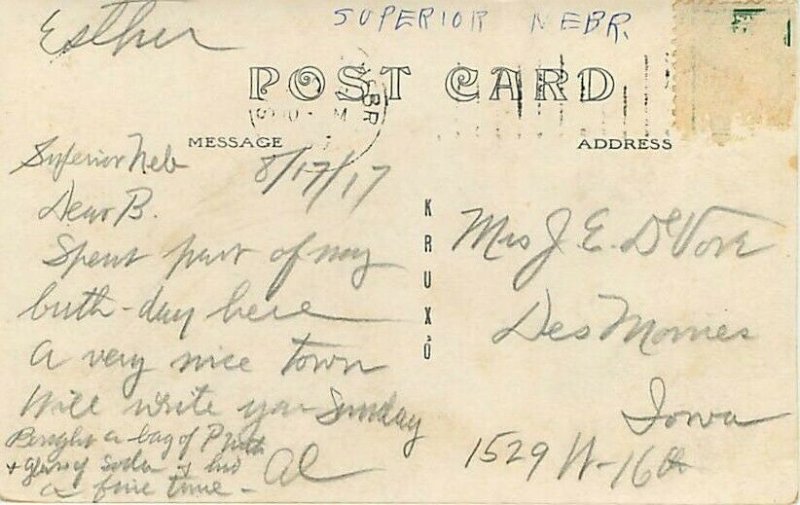 Esther
SUPERIOR NEBR.
POST CARD
MESSAGE
ADDRESS
Superior Neb
8/17/17
Dear B.
Spent part of my
birth-day here
A very nice town
Will write you Sunday
Bought a bag of P
+ glass of soda & had
a fine time -
Al
KRUXO
Mrs J. E. DeVore
Des Moines
Iowa
1529 W-16th